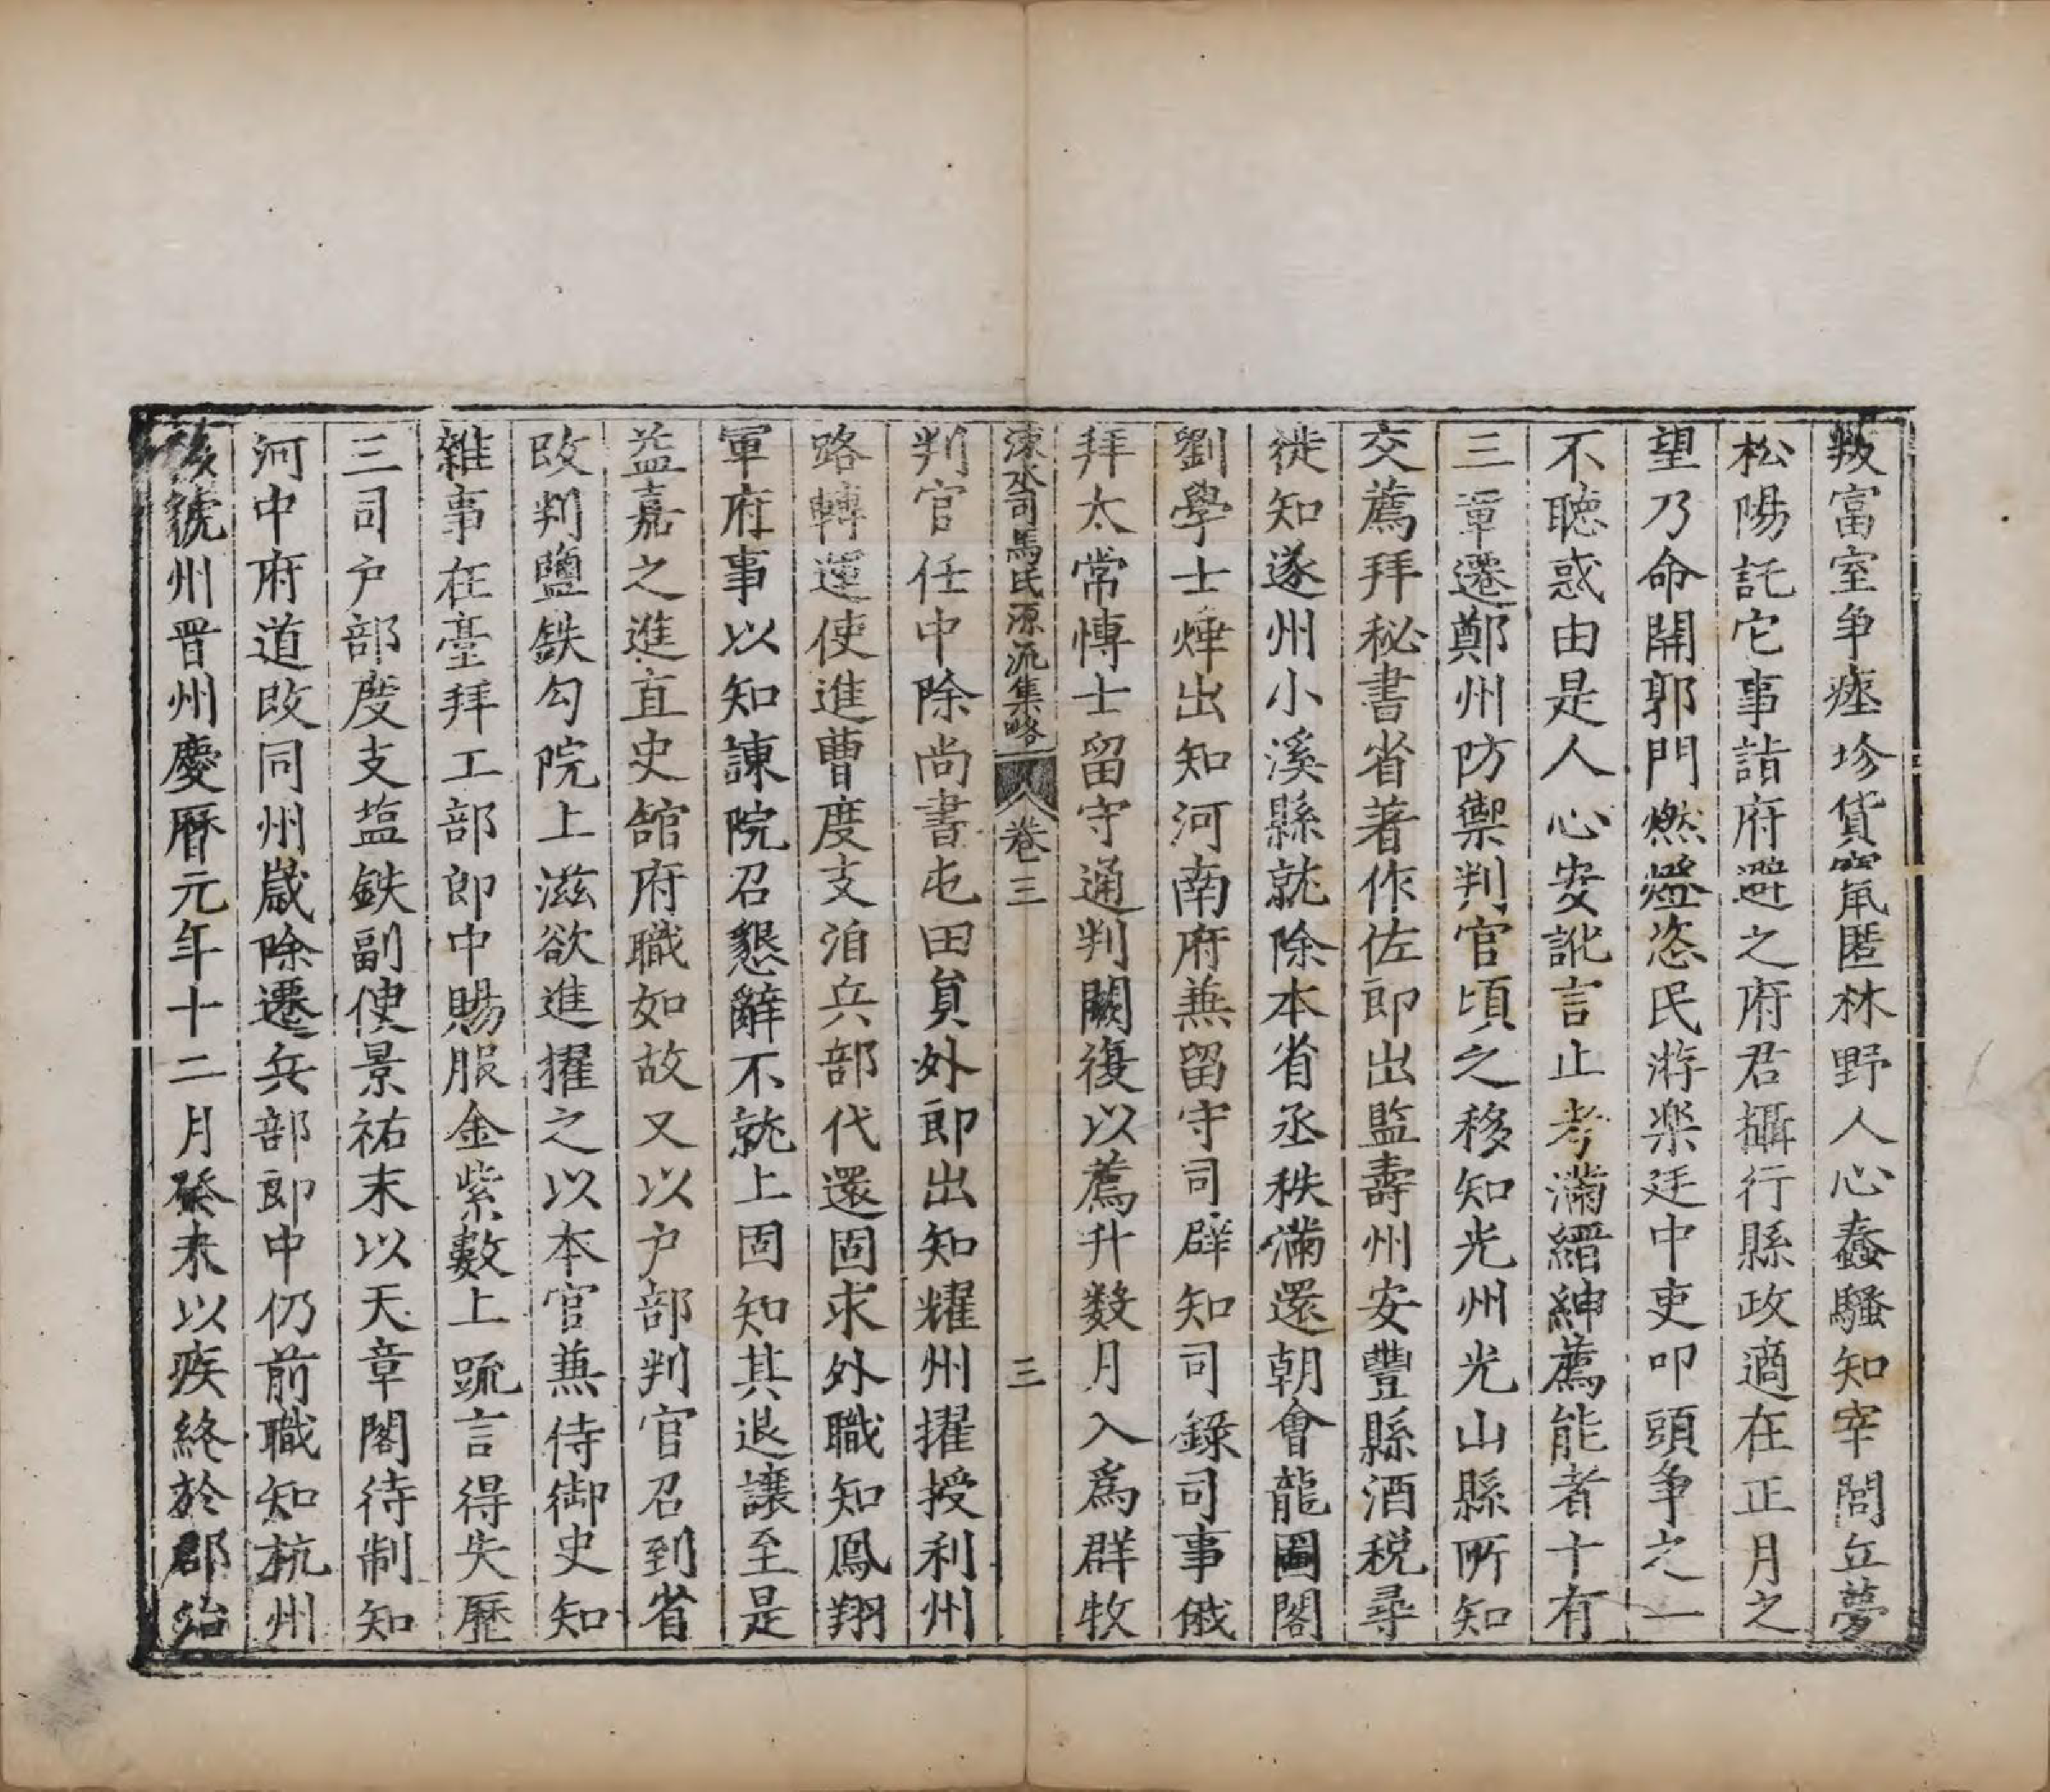 叛富室争瘞珍貨竄匿林野人心蠢騷知宰閭丘夢
松陽託它事詣府避之府君攝行縣政適在正月之
望乃命開郭門燃燈恣民游楽廷中吏叩頭争之一
不聴惑由是人心安訛言止考滿縉紳薦能者十有
三軰遷鄭州防禦判官頃之移知光州光山縣所知
交薦拜秘書省著作佐郎出監壽州安豐縣酒税尋
徙知遂州小溪縣就除本省丞秩滿還朝會龍圖閣
劉學士燁出知河南府兼留守司辟知司錄司事俄
拜太常愽士留守通判闕復以薦升数月入爲群牧
涑水司馬氏源流集略
卷三
三
判官任中除尚書屯田員外郎出知耀州擢授利州
路轉運使進曹度支洎兵部代還固求外職知鳳翔
軍府事以知諌院召懇辭不就上固知其退讓至是
益嘉之進直史舘府職如故又以户部判官召到省
改判鹽鉄勾院上滋欲進擢之以本官兼侍御史知
雜事在臺拜工部郎中賜服金紫數上䟽言得失歷
三司户部度支塩鉄副使景祐末以天章閣待制知
河中府道改同州歲除遷兵部郎中仍前職知杭州
虢州晋州慶曆元年十二月癸未以疾終於郡治